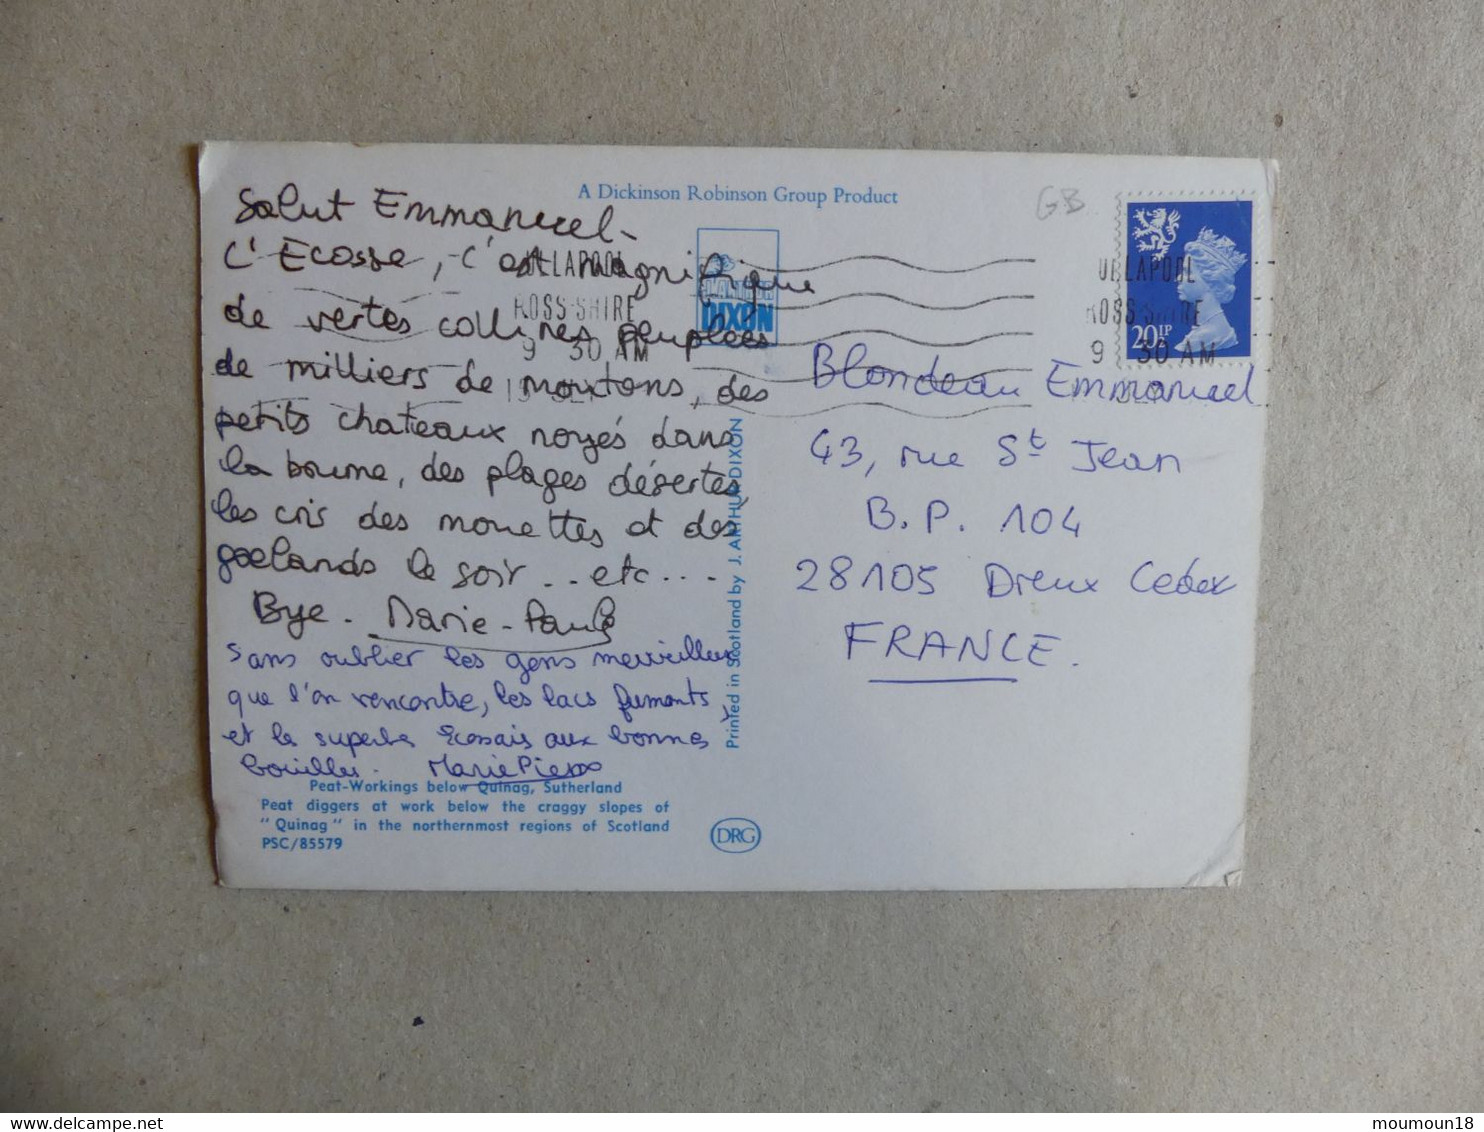 A Dickinson Robinson Group Product
GB
Salut Emmanuel -
L'Ecosse, c'est magnifique
de vertes collines peuplées
de milliers de moutons, des
petits chateaux noyés dans
la brume, des plages désertes,
les cris des mouettes et des
goelands le soir .. etc ...
Bye. Marie-Paule
sans oublier les gens merveilleux
que l'on rencontre, les lacs fumants,
et le superbe Ecossais aux bonnes
bouilles. Marie Pierre
ULLAPOOL
ROSS-SHIRE
9 30 AM
J. ARTHUR
DIXON
ULLAPOOL
ROSS-SHIRE
9 30 AM
20½P
Blondeau Emmanuel
43, rue St Jean
B.P. 104
28105 Dreux Cedex
FRANCE.
Printed in Scotland by J. ARTHUR DIXON
Peat-Workings below Quinag, Sutherland
Peat diggers at work below the craggy slopes of
"Quinag" in the northernmost regions of Scotland
PSC/85579
DRG
moumoun18